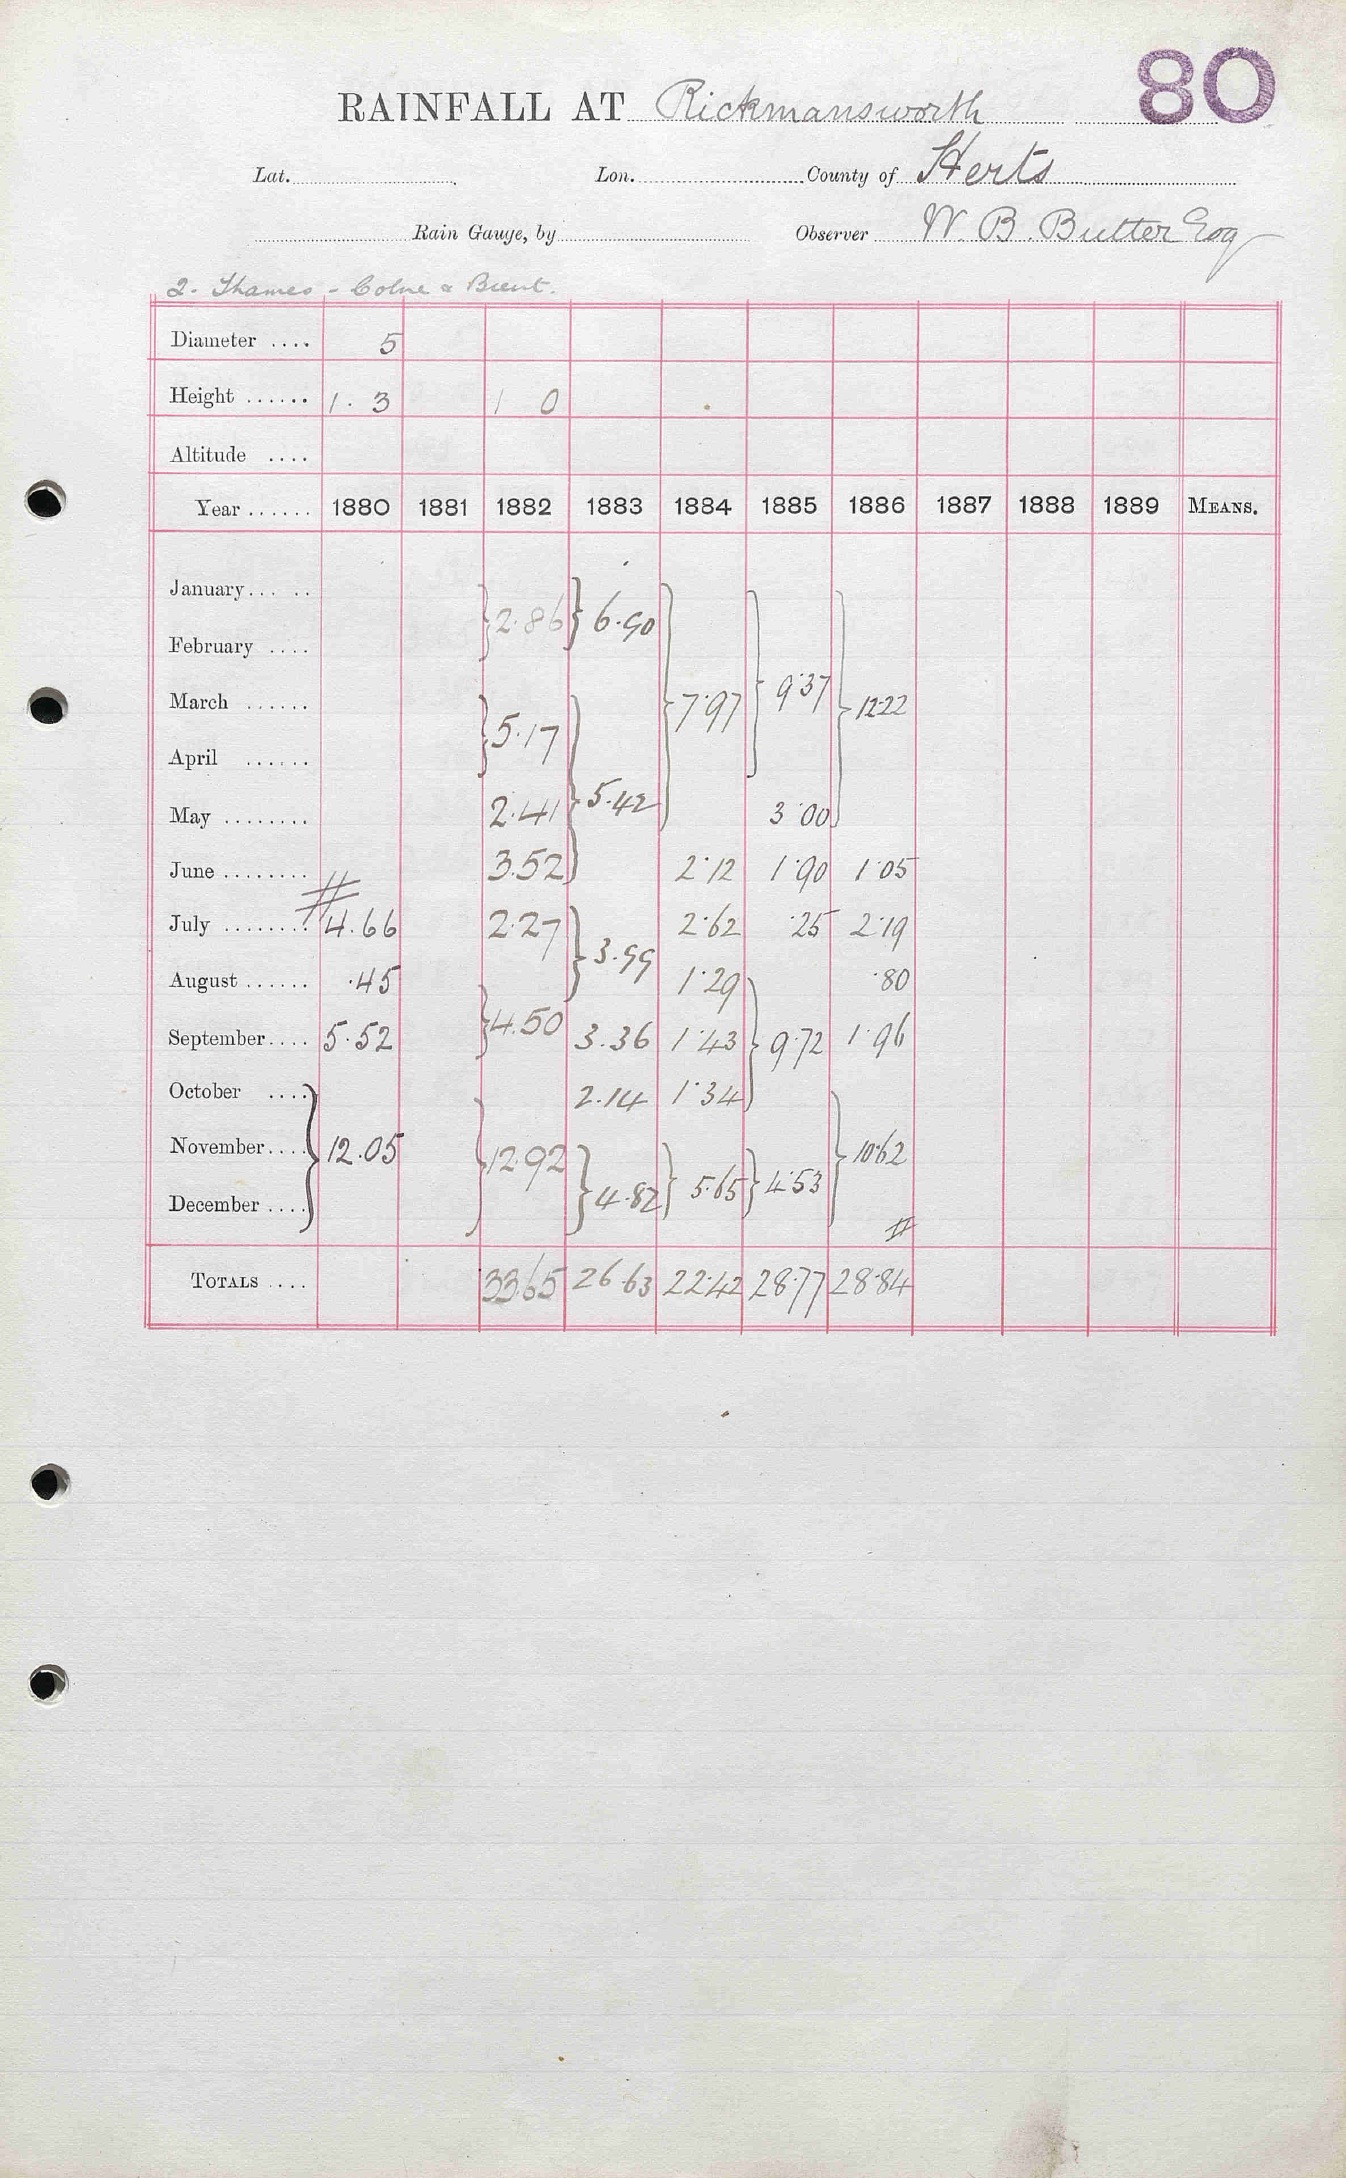 80
RAINFALL AT Rickmansworth
Lat. Lon. County of Herts
Rain Gauge, by Observer W. B. Butter Esq
2. Thames - Colne & Brent.
Diameter .... 5
Height ...... 1. 3 1 0
Altitude ....
Year ...... 1880 1881 1882 1883 1884 1885 1886 1887 1888 1889 MEANS.
January... .. } 2.86 } 6.90
February ....
March ...... } 5.17 } 7.97 } 9.37 } 12.22
April ......
May ........ 2.41 } 5.42 3.00
June ........ 3.52 2.12 1.90 1.05
July ........ # 4.66 2.27 } 3.99 2.62 .25 2.19
August ...... .45 1.29 .80
September.... 5.52 } 4.50 3.36 1.43 } 9.72 1.96
October .... 2.14 1.34
November.... } 12.05 } 12.92 } 4.82 } 5.65 } 4.53 } 10.62
December .... #
TOTALS .... 33.65 26.63 22.42 28.77 28.84